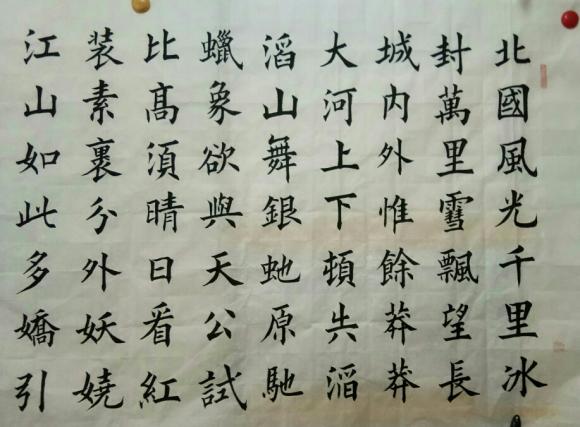 北國風光千里冰
封萬里雪飄望長
城内外惟餘莽莽
大河上下頓失滔
滔山舞銀虵原馳
蠟象欲與天公試
比高須晴日看紅
装素裹分外妖嬈
江山如此多嬌引